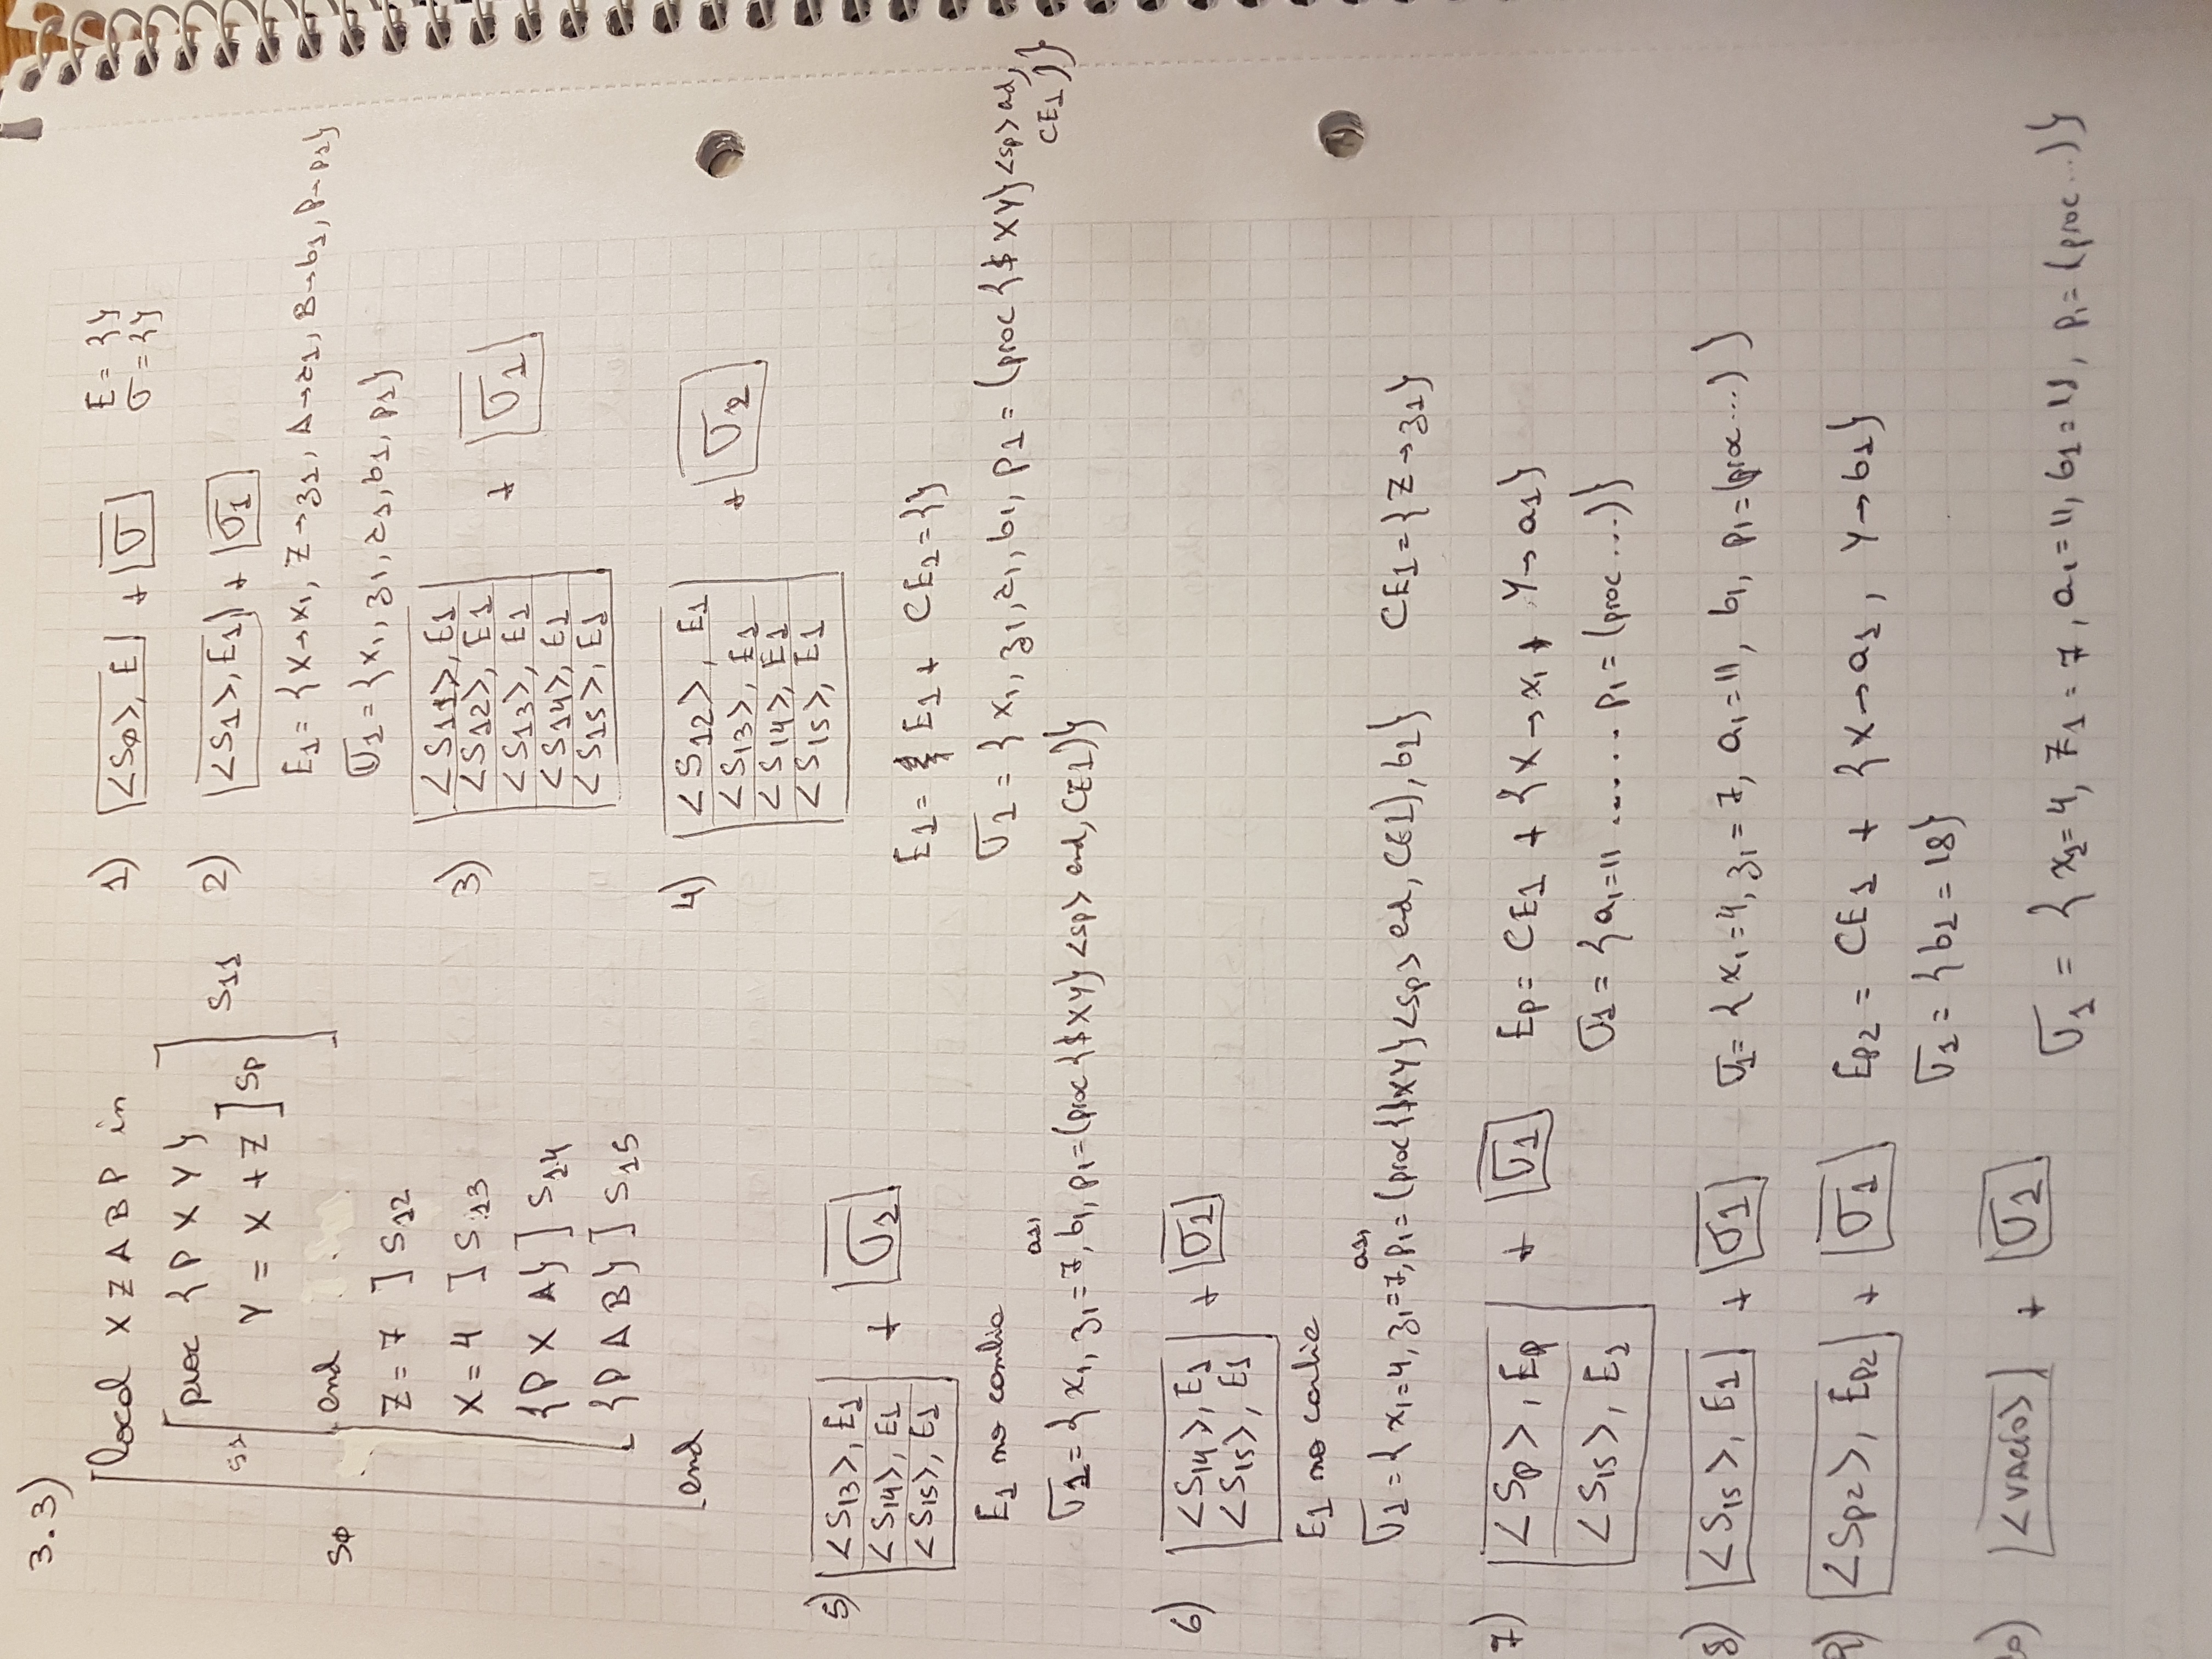 3.3)
local X Z A B P in
proc {P X Y}
Y = X + Z ] Sp
end
Z = 7 ] S12
X = 4 ] S13
{P X A} ] S14
{P A B} ] S15
end
S0
S1
S11
1) <S0>, E + σ E = {}
σ = {}
2) <S1>, E1 + σ1
E1 = {X→x1, Z→z1, A→a1, B→b1, P→p1}
σ1 = {x1, z1, a1, b1, p1}
3) <S11>, E1
<S12>, E1
<S13>, E1
<S14>, E1
<S15>, E1
+ σ1
4) <S12>, E1
<S13>, E1
<S14>, E1
<S15>, E1
+ σ2
E1 = E1 + CE1 = {}
σ1 = {x1, z1, a1, b1, p1 = (proc {$ X Y} <sp> end,
CE1)}
5) <S13>, E1
<S14>, E1
<S15>, E1
+ σ1
E1 no cambia
a1,
σ1 = {x1, z1 = 7, b1, p1 = (proc {$ X Y} <sp> end, CE1)}
6) <S14>, E1
<S15>, E1
+ σ1
E1 no cambia
a1,
σ1 = {x1 = 4, z1 = 7, p1 = (proc {$ X Y} <sp> end, CE1), b1} CE1 = {Z→z1}
7) <Sp>, Ep
<S15>, E1
+ σ1 Ep = CE1 + {X→x1, Y→a1}
σ1 = {a1 = 11 ...... p1 = (proc ...)}
8) <S15>, E1 + σ1 σ1 = {x1 = 4, z1 = 7, a1 = 11, b1, p1 = (proc ...) }
9) <Sp2>, Ep2 + σ1 Ep2 = CE1 + {X→a1, Y→b1}
σ1 = {b1 = 18}
10) <VACÍO> + σ1
σ1 = {x1 = 4, z1 = 7, a1 = 11, b1 = 18, p1 = (proc ...)}